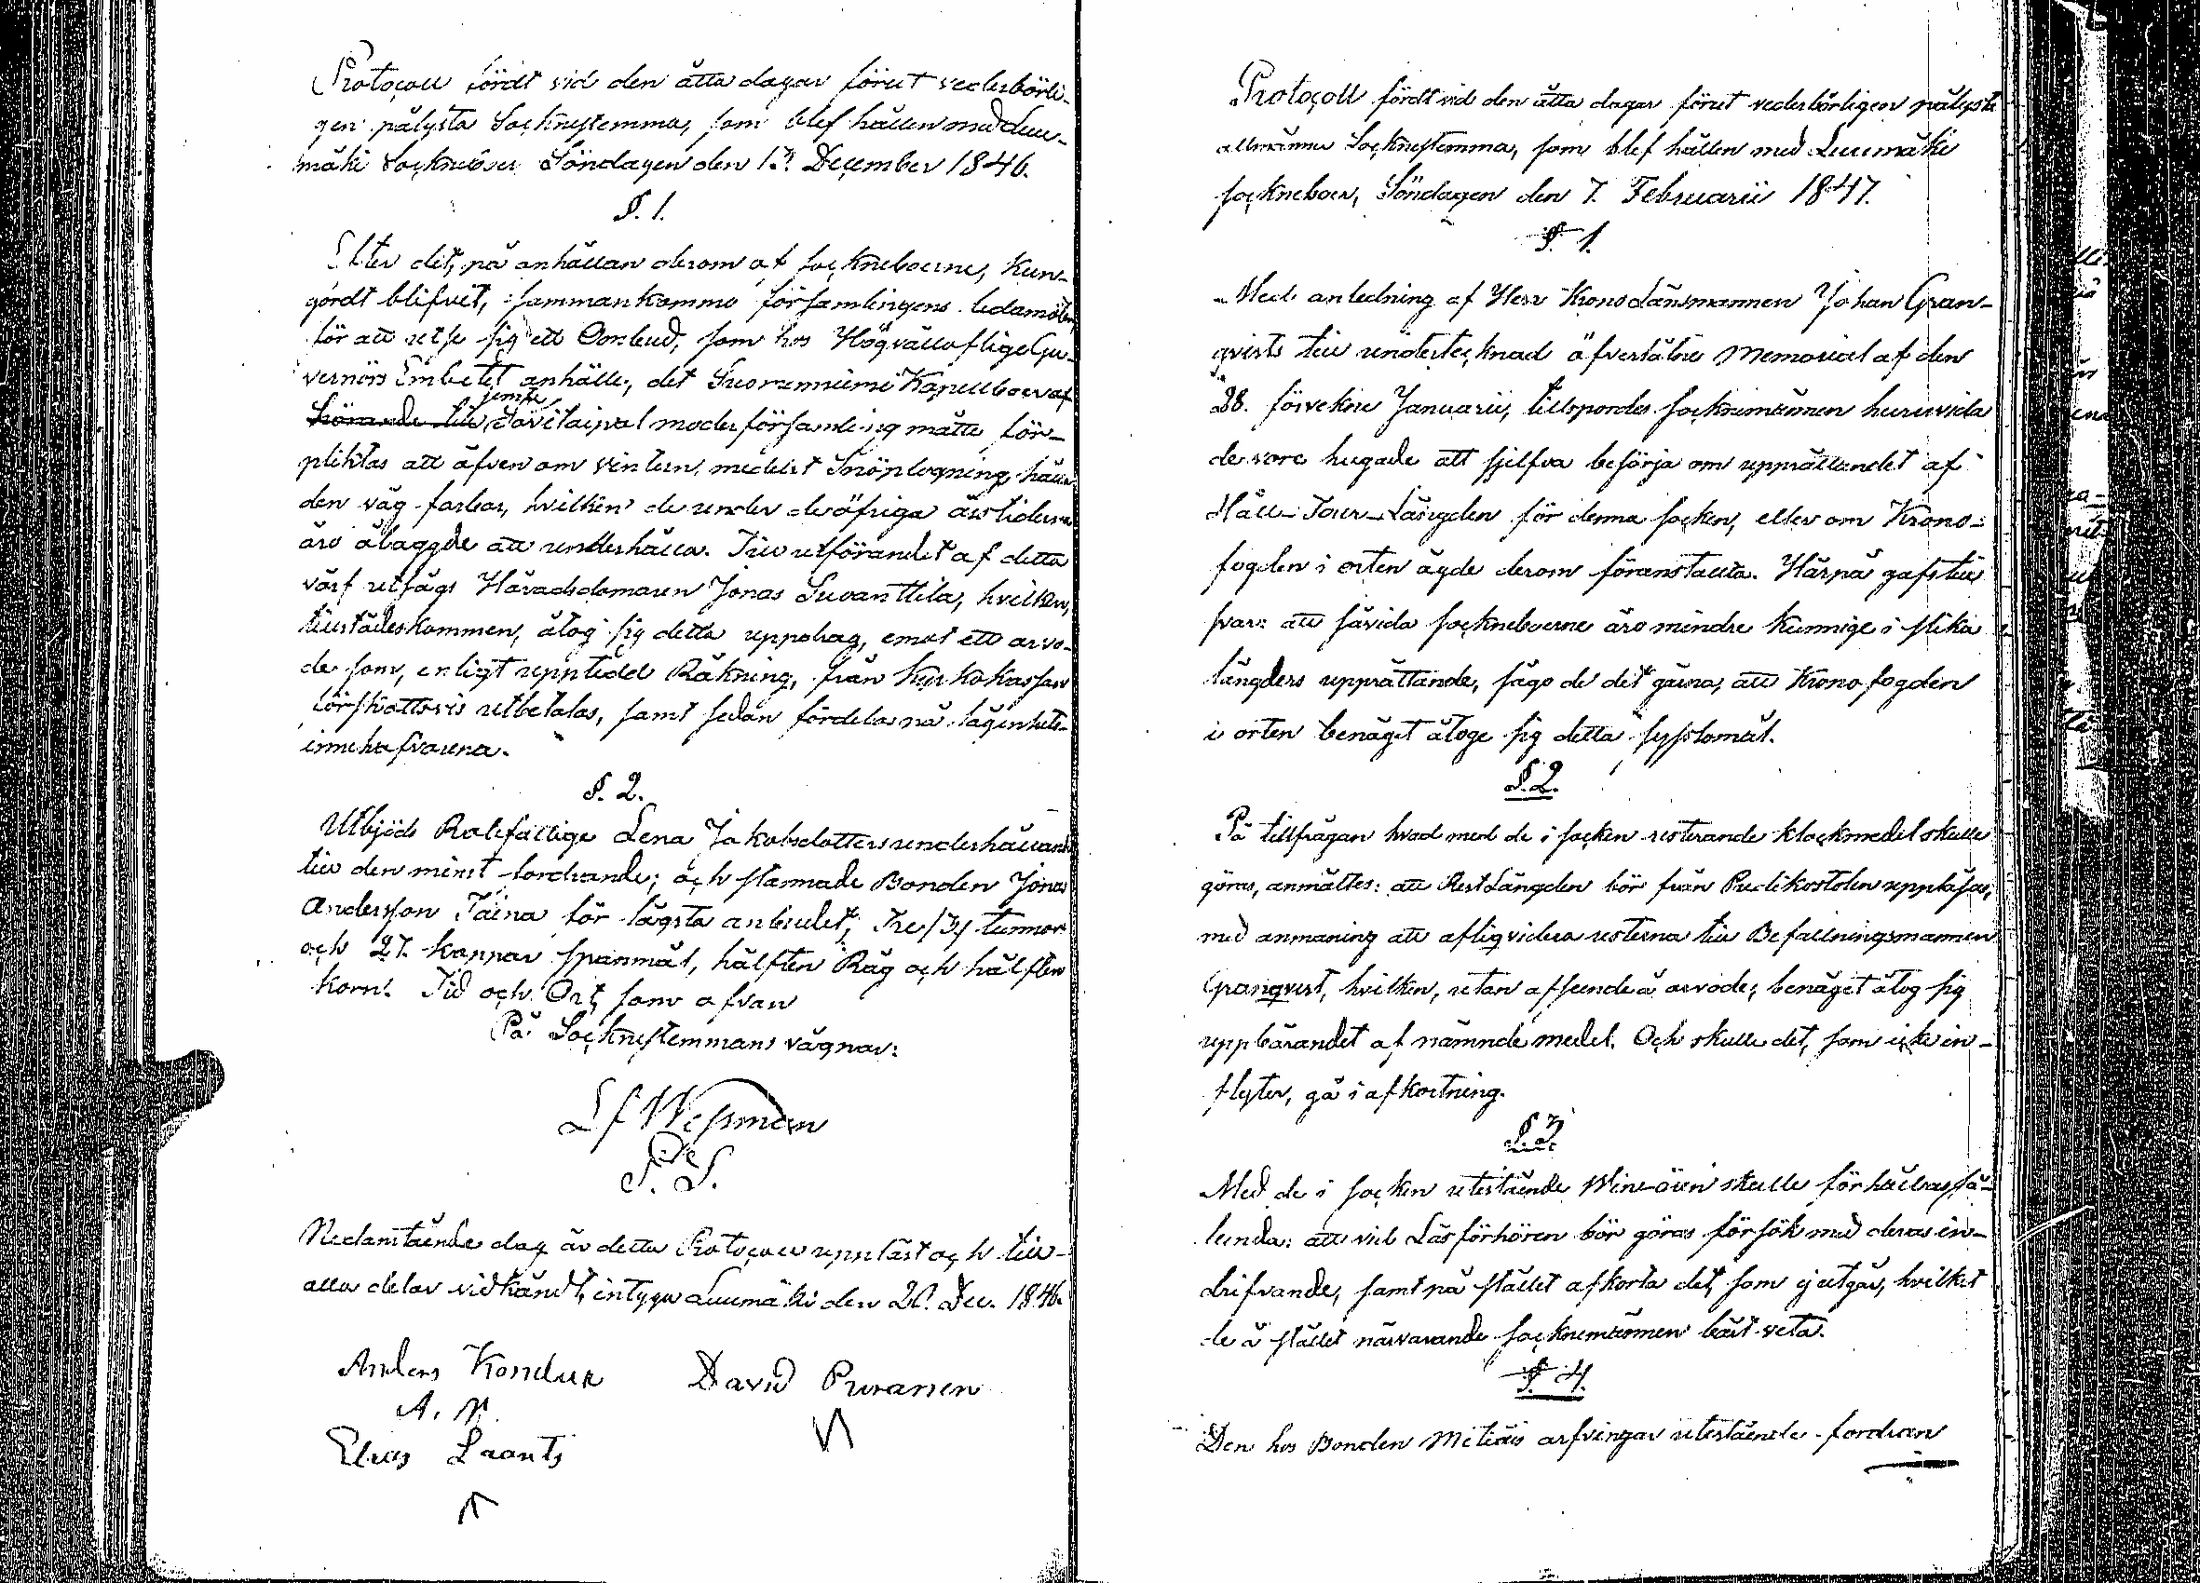 Protocoll fördt vid den åtta dagar förut vederbörli-
gen pålysta Socknestemma, som blef hållen med Luu-
mäki Sockneboer Söndagen den 13. December 1846.
§. 1.
Efter det, på anhållan derom af sockneboerne, kun-
gordt blifvit, sammankommo församlingens ledamöter
för att utse sig ett Ombud, som hos Högvällofliga Gu-
vernörs Embetet anhåller, det Suomenniemi Kapellboer af
jemte
hörande till, Savitaipal moderförsamling måtte för-
pliktas att äfven om vintern, medelst Snöplogning, hålla
den väg farbar, hvilken de under de öfriga årstiderna
äro ålaggde att underhålla. Till utförandet af detta
värf utsågs Häradsdomaren Jonas Suvanttila, hvilken,
tillstädeskommen, åtog sig detta uppdrag, emot ett arvo-
de som, enligt upptedd Räkning, från Kyrkokassan
förskottsvis utbetalas, samt sedan fördelas på lägenhets-
innehafvarena.
§. 2.
Utbjöds Rotefattige Lena Jakobsdotters underhållande
till den minst fordrande; och stannade Bonden Jonas
Andersson Taina för lägsta anbudet; Tre /3/ tunnor
och 27. kappar spanmål, hälften Råg och hälften
korn. Tid och Ort som ofvan
På Socknestemmans vägnar:
Lf Wessman
P. S.
Nedanstående dag är detta Protocoll uppläst och till
alla delar vidkändt, intyga Luumäki den 20. Dec. 1846.
Anders Kondur David Puranen
A. K.
Elias Laants
Protocoll fördt vid den åtta dagar förut vederbörligen pålysta
allmänna Socknestemma, som blef hållen med Luumäki
sockneboer, Söndagen den 7. Februarii 1847.
§ 1.
Med anledning af Herr KronoLänsmannen Johan Gran-
qvists till undertecknad aflåtne Memorial af den
28. förvekne Januarii, tillspordes socknemännen huruvida
de vore hugade att sjelfva besörja om upprättandet af
Håll-Tour-Längden för denna socken, eller om Krono-
fogden i orten ägde derom föranstalta. Härpå gafs till
svar: att såvida sockneboerne äro mindre kunnige i slika
längders upprättande, sågo de det gärna, att Kronofogden
i orten benäget åtoge sig detta sysslomål.
§. 2.
På tillfrågan hvad med de i socken resterande klockmedel skulle
göras, anmältes: att Rest Längden bör från Predikostolen uppläsas,
med anmaning att afliqvidera resterna till Befallningsmannen
Granqvist, hvilken, utan afseende å arvode, benäget åtog sig
uppbärandet af nämnde medel. Och skulle det, som icke in-
flyter, gå i afkortning.
§. 3.
Med de i socken utestående skulle förhållas så-
lunda: att vid Läsförhören bör göras försök med deras in-
drifvande, samt på stället afkorta det, som ej utgår, hvilket
de å stället närvarande socknemännen bäst veta.
§ 4.
Den hos Bonden arfvingar utestående fordran